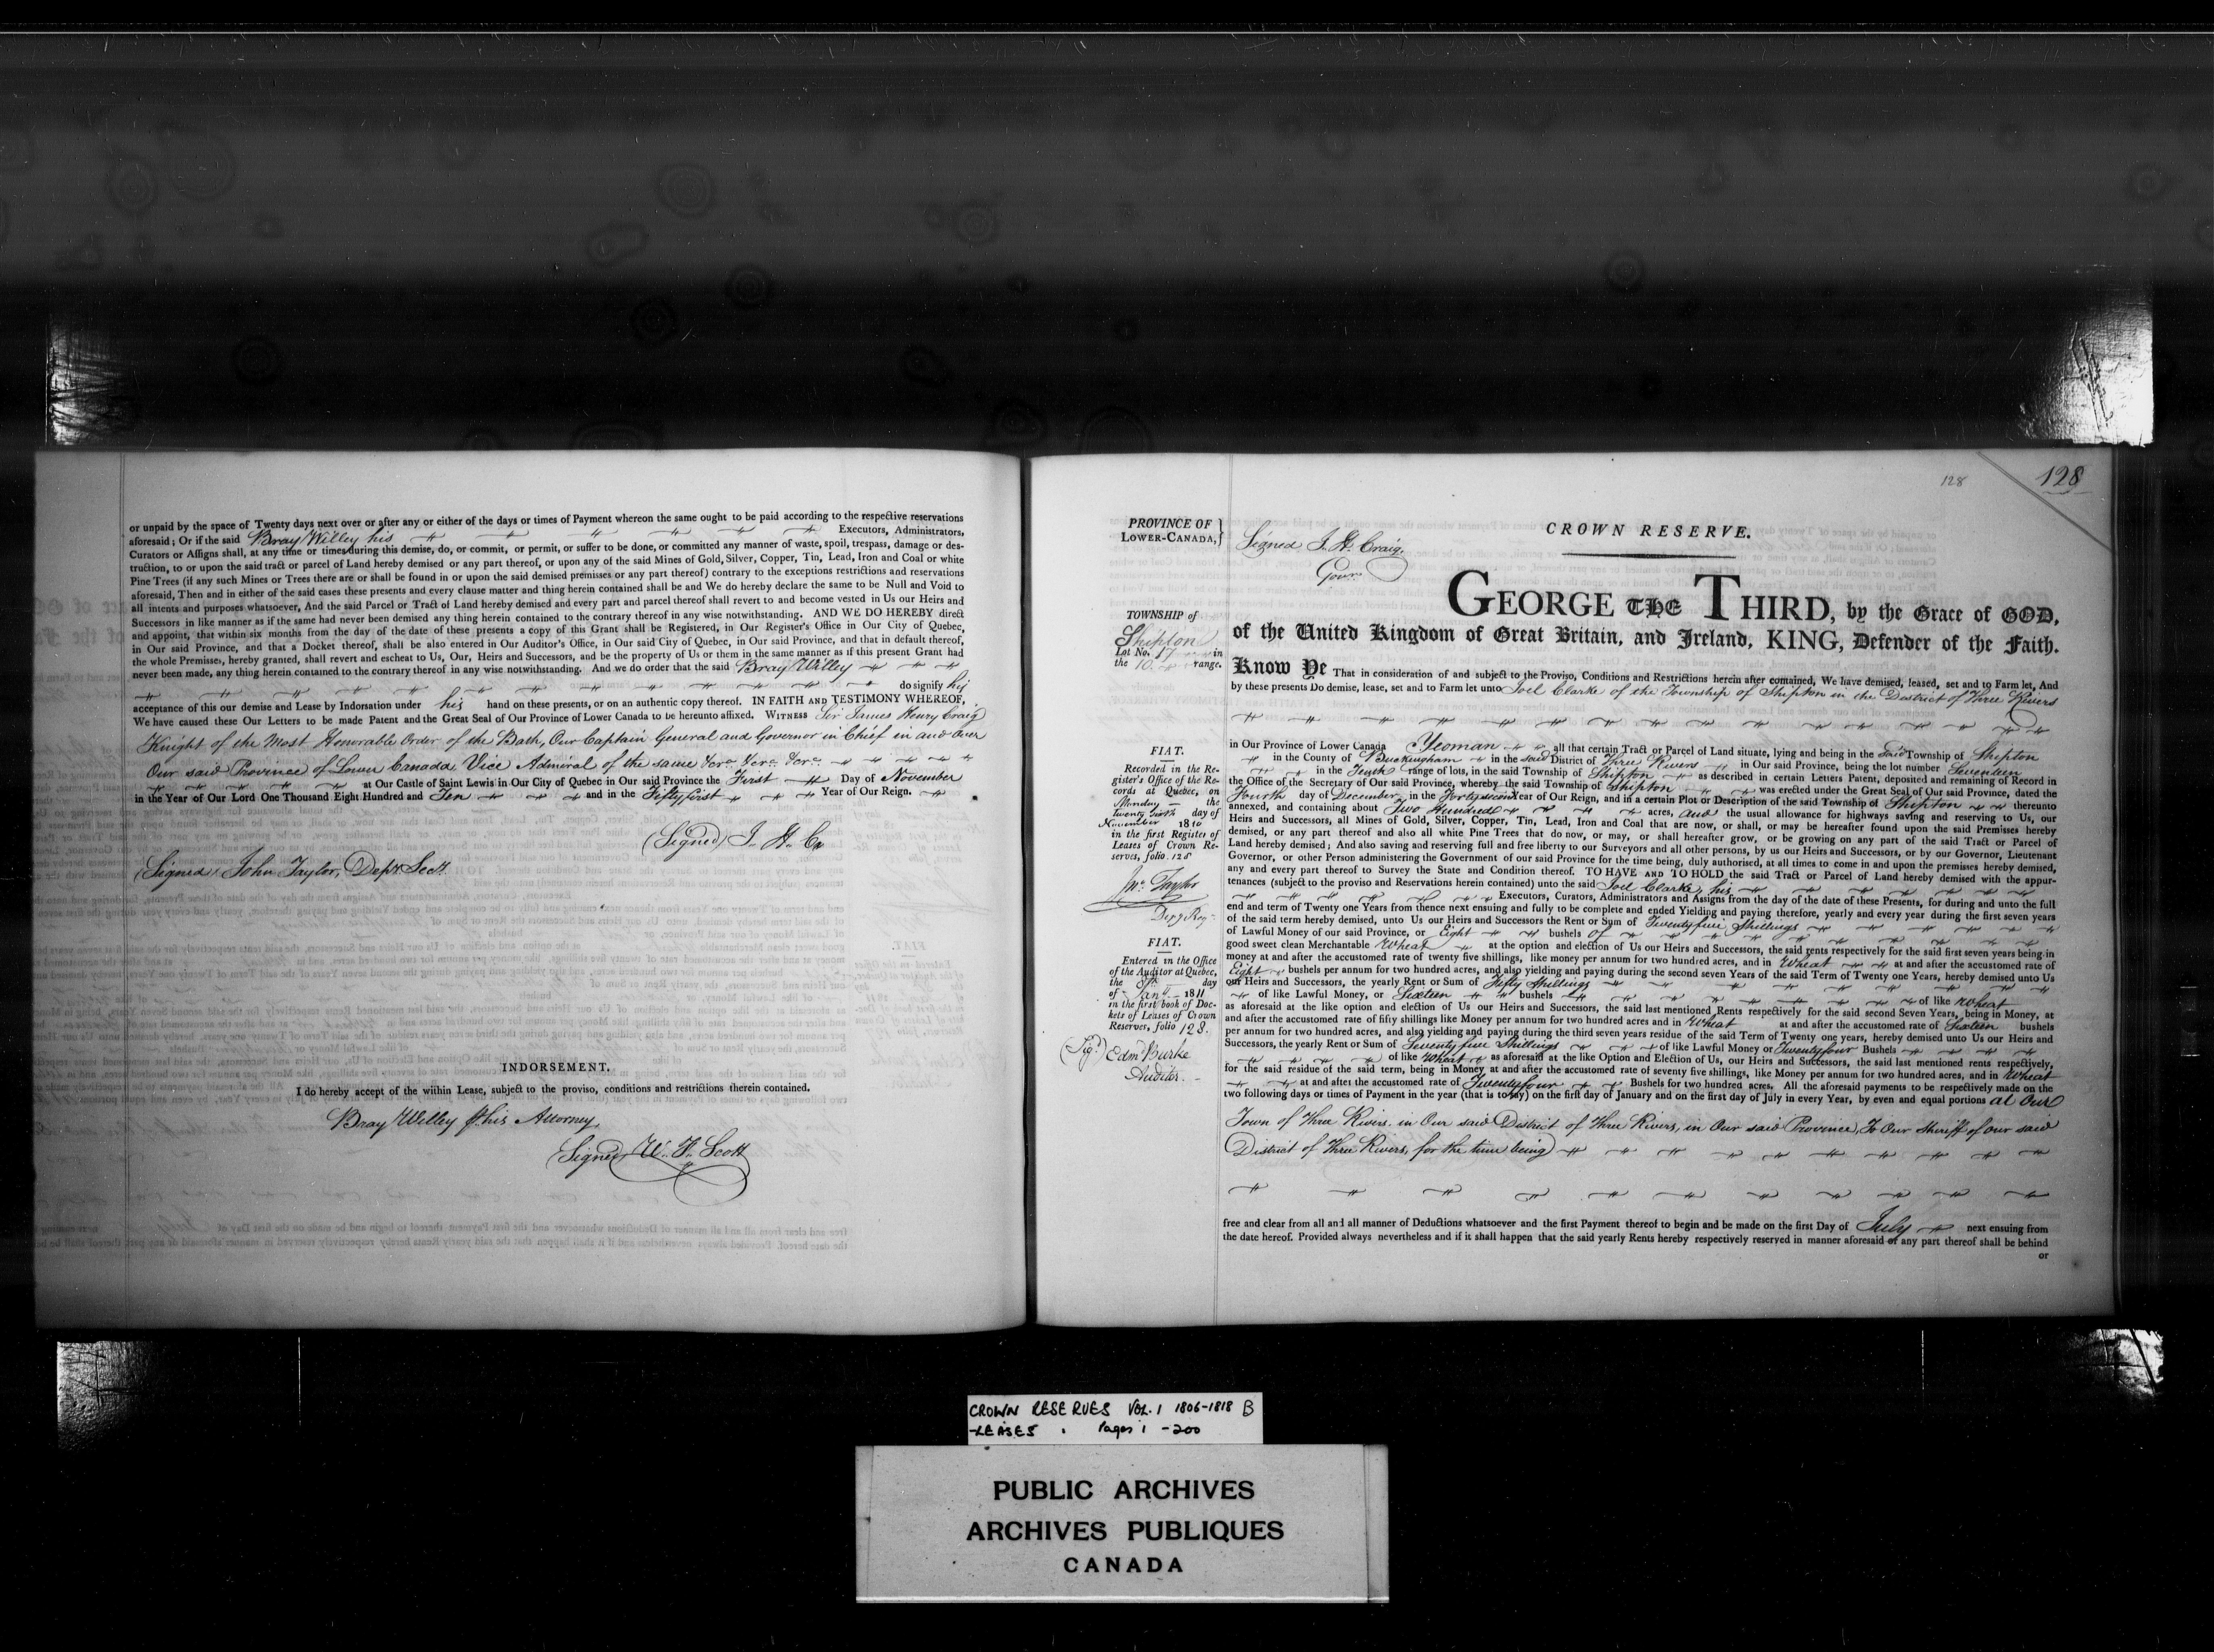 or unpaid by the space of Twenty days next over or after any or either of the days or times of Payment whereon the same ought to be paid according to the respective reservations
aforesaid; Or if the said Bray Willey his Executors, Administrators,
Curators or Assigns shall, at any time or times during this demise, do, or commit, or permit, or suffer to be done, or committed any manner of waste, spoil, trespass, damage or des-
truction, to or upon the said tract or parcel of Land hereby demised or any part thereof, or upon any of the said Mines of Gold, Silver, Copper, Tin, Lead, Iron and Coal or white
Pine Trees (if any such Mines or Trees there are or shall be found in or upon the said demised premisses or any part thereof) contrary to the exceptions restrictions and reservations
aforesaid, Then and in either of the said cases these presents and every clause matter and thing herein contained shall be and We do hereby declare the same to be Null and Void to
all intents and purposes whatsoever, And the said Parcel or Tract of Land hereby demised and every part and parcel thereof shall revert to and become vested in Us our Heirs and
Successors in like manner as if the same had never been demised any thing herein contained to the contrary thereof in any wise notwithstanding. AND WE DO HEREBY direct
and appoint, that within six months from the day of the date of these presents a copy of this Grant shall be Registered, in Our Register's Office in Our City of Quebec,
in Our said Province, and that a Docket thereof, shall be also entered in Our Auditor's Office, in Our said City of Quebec, in Our said Province, and that in default thereof,
the whole Premisses, hereby granted, shall revert and escheat to Us, Our, Heirs and Successors, and be the property of Us or them in the same manner as if this present Grant had
never been made, any thing herein contained to the contrary thereof in any wise notwithstanding. And we do order that the said Bray Willey
do signify his
acceptance of this our demise and Lease by Indorsation under his hand on these presents, or on an authentic copy thereof. IN FAITH AND TESTIMONY WHEREOF,
We have caused these Our Letters to be made Patent and the Great Seal of Our Province of Lower Canada to be hereunto affixed. WITNESS Sir James Henry Craig
Knight of the Most Honorable Order of the Bath, Our Captain General and Governor in Chief in and over
Our said Province of Lower Canada Vice Admiral of the same &c. &c. &c.
at Our Castle of Saint Lewis in Our City of Quebec in Our said Province the First Day of November
in the Year of Our Lord One Thousand Eight Hundred and Ten and in the Fifty first Year of Our Reign.
(Signed) J. H. C
(Signed) John Taylor, Depy Secy.
INDORSEMENT.
I do hereby accept of the within Lease, subject to the proviso, conditions and restrictions therein contained.
Bray Willey his Attorney
(Signed) W. F. Scott
128 128
PROVINCE OF
LOWER-CANADA,
Signed J. H. Craig.
Govr.
CROWN RESERVE.
TOWNSHIP of
Shipton
Lot No. 17 in
the 10 range.
GEORGE THE THIRD, by the Grace of GOD,
of the United Kingdom of Great Britain, and Ireland, KING, Defender of the Faith.
Know Ye That in consideration of and subject to the Proviso, Conditions and Restrictions herein after contained, We have demised, leased, set and to Farm let, And
by these presents Do demise, lease, set and to Farm let unto Joel Clarke of the Township of Shipton in the District of Three Rivers
in Our Province of Lower Canada Yeoman all that certain Tract or Parcel of Land situate, lying and being in the said Township of Shipton
in the County of Buckingham in the said District of Three Rivers in Our said Province, being the lot number Seventeen
in the Tenth range of lots, in the said Township of Shipton as described in certain Letters Patent, deposited and remaining of Record in
the Office of the Secretary of Our said Province, whereby the said Township of Shipton was erected under the Great Seal of Our said Province, dated the
Fourth day of December in the Forty second Year of Our Reign, and in a certain Plot or Description of the said Township of Shipton thereunto
annexed, and containing about Two Hundred acres, and the usual allowance for highways saving and reserving to Us, our
Heirs and Successors, all Mines of Gold, Silver, Copper, Tin, Lead, Iron and Coal that are now, or shall, or may be hereafter found upon the said Premisses hereby
demised, or any part thereof and also all white Pine Trees that do now, or may, or shall hereafter grow, or be growing on any part of the said Tract or Parcel of
Land hereby demised; And also saving and reserving full and free liberty to our Surveyors and all other persons, by us our Heirs and Successors, or by our Governor, Lieutenant
Governor, or other Person administering the Government of our said Province for the time being, duly authorised, at all times to come in and upon the premisses hereby demised,
any and every part thereof to Survey the State and Condition thereof. TO HAVE AND TO HOLD the said Tract or Parcel of Land hereby demised with the appur-
tenances (subject to the proviso and Reservations herein contained) unto the said Joel Clarke, his
Executors, Curators, Administrators and Assigns from the day of the date of these Presents, for during and unto the full
end and term of Twenty one Years from thence next ensuing and fully to be complete and ended Yielding and paying therefore, yearly and every year during the first seven years
of the said term hereby demised, unto Us our Heirs and Successors the Rent or Sum of Twenty five Shillings
of Lawful Money of our said Province, or Eight bushels of
good sweet clean Merchantable Wheat at the option and election of Us our Heirs and Successors, the said rents respectively for the said first seven years being in
money at and after the accustomed rate of twenty five shillings, like money per annum for two hundred acres, and in Wheat at and after the accustomed rate of
Eight bushels per annum for two hundred acres, and also yielding and paying during the second seven Years of the said Term of Twenty one Years, hereby demised unto Us
our Heirs and Successors, the yearly Rent or Sum of Fifty Shillings
of like Lawful Money, or Sixteen bushels of like Wheat
as aforesaid at the like option and election of Us our Heirs and Successors, the said last mentioned Rents respectively for the said second Seven Years, being in Money, at
and after the accustomed rate of fifty shillings like Money per annum for two hundred acres and in Wheat at and after the accustomed rate of Sixteen bushels
per annum for two hundred acres, and also yielding and paying during the third seven years residue of the said Term of Twenty one years, hereby demised unto Us our Heirs and
Successors, the yearly Rent or Sum of Seventy five Shillings of like Lawful Money or Twenty four Bushels
of like Wheat as aforesaid at the like Option and Election of Us, our Heirs and Successors, the said last mentioned rents respectively,
for the said residue of the said term, being in Money at and after the accustomed rate of seventy five shillings, like Money per annum for two hundred acres, and in Wheat
at and after the accustomed rate of Twenty four Bushels for two hundred acres. All the aforesaid payments to be respectively made on the
two following days or times of Payment in the year (that is to say) on the first day of January and on the first day of July in every Year, by even and equal portions at Our
Town of Three Rivers in Our said District of Three Rivers, in Our said Province, To Our Sheriff of our said
District of Three Rivers, for the time being
free and clear from all and all manner of Deductions whatsoever and the first Payment thereof to begin and be made on the first Day of July next ensuing from
the date hereof. Provided always nevertheless and if it shall happen that the said yearly Rents hereby respectively reserved in manner aforesaid or any part thereof shall be behind
or
FIAT.
Recorded in the Re-
gister's Office of the Re-
cords at Quebec, on
Monday the
Twenty Sixth day of
November 1810
in the first Register of
Leases of Crown Re-
serves, folio 128
Jno. Taylor
Depy Regr
FIAT.
Entered in the Office
of the Auditor at Quebec,
the 8th day
of Jany 1811
in the first book of Doc-
kets of Leases of Crown
Reserves, folio 128.
(Sigd) Edmd Burke
Auditor.
CROWN RESERVES VOL. 1 1806-1818 B
-LEASES . Pages 1 -200
PUBLIC ARCHIVES
ARCHIVES PUBLIQUES
CANADA